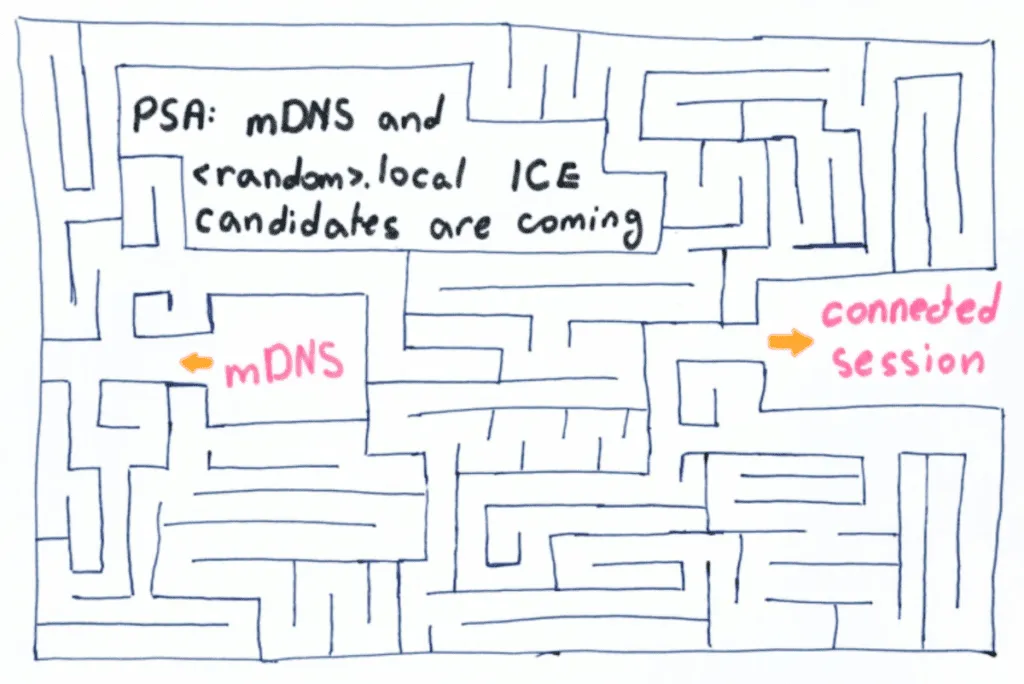 PSA: mDNS and
<random>.local ICE
candidates are coming
mDNS
connected
session